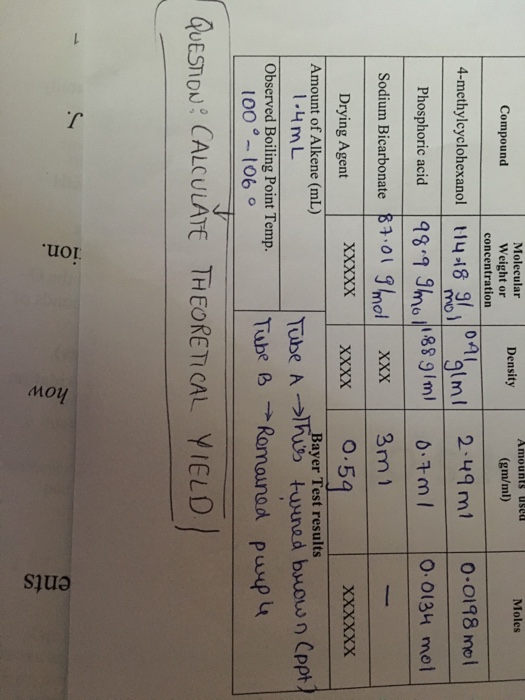 Compound
Molecular
Weight or
concentration
Density
Amounts used
(gm/ml)
Moles
4-methylcyclohexanol
114.18 g/mol
0.91 g/ml
2.49 ml
0.0198 mol
Phosphoric acid
98.9 g/mol
1.88 g/ml
0.7 ml
0.0134 mol
Sodium Bicarbonate
87.01 g/mol
XXX
3 ml
—
Drying Agent
XXXXX
XXXX
0.5g
XXXXXX
Amount of Alkene (mL)
1.4 mL
Bayer Test results
Tube A → This turned brown (ppt)
Observed Boiling Point Temp.
100° - 106°
Tube B → Remained purple
QUESTION: CALCULATE THEORETICAL YIELD!
1
J.
ion.
how
ents